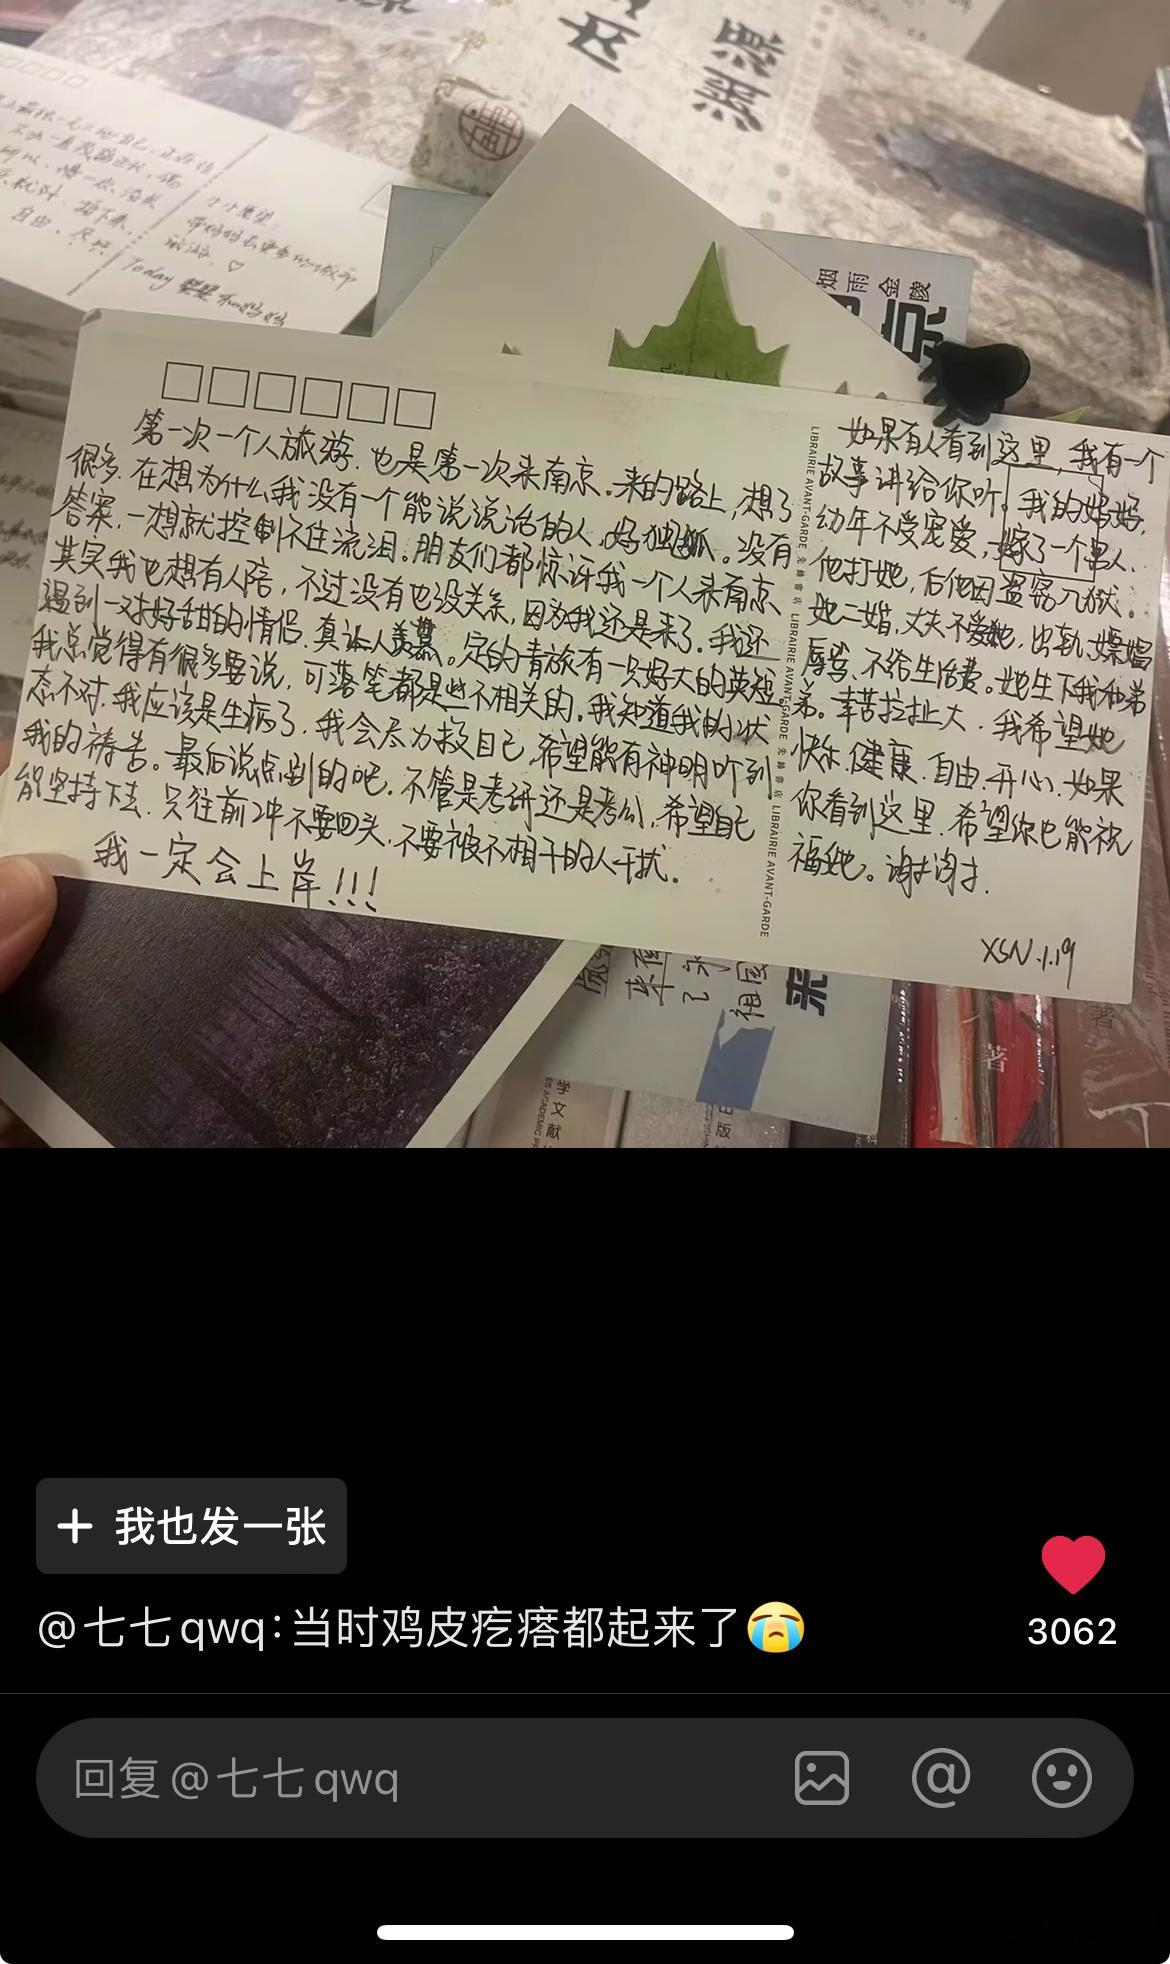 第一次一个人旅游.也是第一次来南京。来的路上,想了
很多.在想为什么我没有一个能说说话的人.好独孤。没有
答案.一想就控制不住流泪。朋友们都惊讶我一个人来南京.
其实我也想有人陪,不过没有也没关系,因为我还是来了。我还
遇到一对好甜的情侣.真让人羡慕。定的青旅有一只好大的英短.
我总觉得有很多要说,可落笔都是些不相关的。我知道我的状
态不对.我应该是生病了.我会尽力救自己.希望能有神明听到
我的祷告。最后说点别的吧.不管是考研还是考公,希望自己
能坚持下去.只往前冲不要回头.不要被不相干的人干扰。
我一定会上岸!!!
如果有人看到这里,我有一个
故事讲给你听。我的妈妈,
幼年不受宠爱,嫁了一个男人.
他打她,后他因盗窃入狱。
她二婚,丈夫不爱她,出轨、嫖娼
辱骂、不给生活费。她生下我和弟
弟。辛苦拉扯大.我希望她
快乐.健康.自由.开心.如果
你看到这里.希望你也能祝
福她。谢谢.
XSN.1.19
LIBRAIRIE AVANT-GARDE 先鋒書店 LIBRAIRIE AVANT-GARDE 先鋒書店 LIBRAIRIE AVANT-GARDE
小小愿望:
Today
烟雨金陵
京
祖国
著
学文献
+ 我也发一张
@七七qwq:当时鸡皮疙瘩都起来了😭
3062
回复 @七七qwq